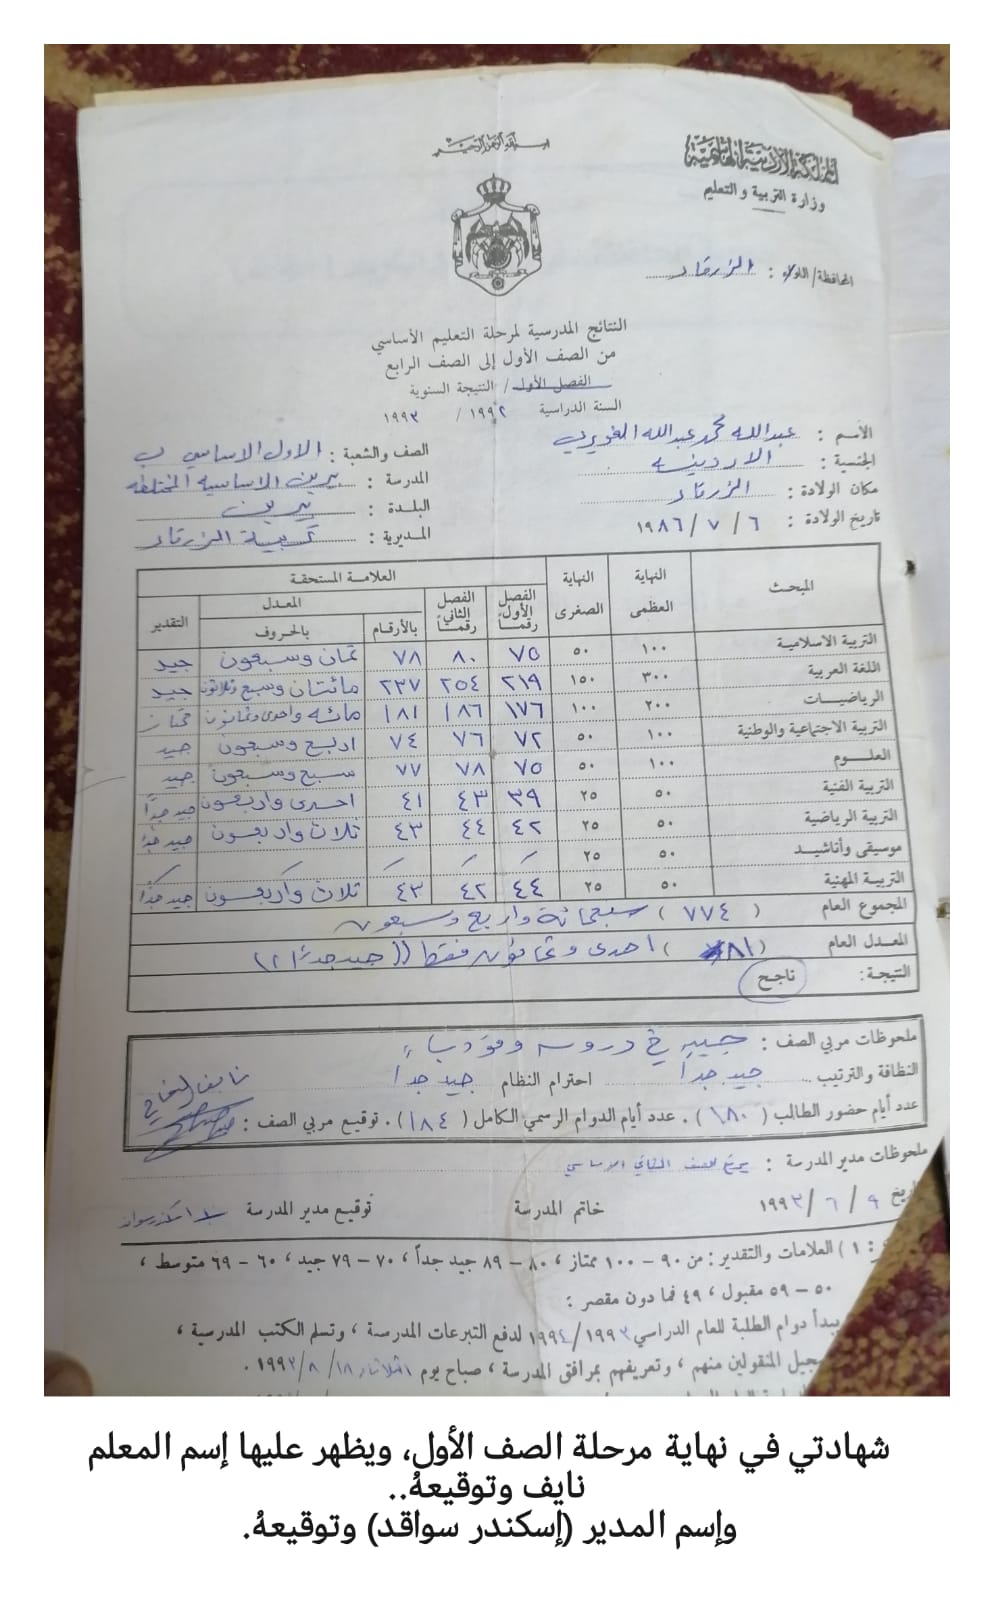 بسم الله الرحمن الرحيم
المملكة الأردنية الهاشمية
وزارة التربية والتعليم
المحافظة/اللواء : الزرقاء
النتائج المدرسية لمرحلة التعليم الأساسي
من الصف الأول إلى الصف الرابع
الفصل الأول / النتيجة السنوية
السنة الدراسية ١٩٩٢ / ١٩٩٣
الأسم : عبدالله محمد عبدالله الغويري
الصف والشعبة : الاول الاساسي ب
الجنسية : الاردنيه
المدرسة : بيرين الاساسيه المختلطه
مكان الولادة : الزرقاء
البلدة : بيرين
تاريخ الولادة : ٦ / ٧ / ١٩٨٦
المديرية : تربية الزرقاء
المبحث النهاية العظمى النهاية الصغرى العلامة المستحقة
الفصل الأول رقماً الفصل الثاني رقماً المعدل بالأرقام بالحروف التقدير
التربية الاسلامية ١٠٠ ٥٠ ٧٥ ٨٠ ٧٨ ثمان وسبعون جيد
اللغة العربية ٣٠٠ ١٥٠ ٢١٩ ٢٥٤ ٢٣٧ مائتان وسبع وثلاثون جيد
الرياضيات ٢٠٠ ١٠٠ ١٧٦ ١٨٦ ١٨١ مائه واحدى وثمانون ممتاز
التربية الاجتماعية والوطنية ١٠٠ ٥٠ ٧٢ ٧٦ ٧٤ اربع وسبعون جيد
العلوم ١٠٠ ٥٠ ٧٥ ٧٨ ٧٧ سبع وسبعون جيد
التربية الفنية ٥٠ ٢٥ ٣٩ ٤٣ ٤١ احدى واربعون جيد جداً
التربية الرياضية ٥٠ ٢٥ ٤٢ ٤٤ ٤٣ ثلاث واربعون جيد جداً
موسيقى وأناشيد ٥٠ ٢٥
التربية المهنية ٥٠ ٢٥ ٤٤ ٤٢ ٤٣ ثلاث واربعون جيد جداً
المجموع العام ( ٧٧٤ ) سبعمائة واربع وسبعون
المعدل العام ( ٨١ ) احدى وثمانون فقط (( جيد جداً ))
النتيجة : ناجح
ملحوظات مربي الصف : جيد في دروسه ومؤدب
النظافة والترتيب جيد جداً احترام النظام جيد جداً
عدد أيام حضور الطالب ( ١٨٠ ) ، عدد أيام الدوام الرسمي الكامل ( ١٨٤ ) ، توقيع مربي الصف :
ملحوظات مدير المدرسة : يرفع للصف الثاني الاساسي
٩ / ٦ / ١٩٩٣ خاتم المدرسة توقيع مدير المدرسة
١ ) العلامات والتقدير : من ٩٠ - ١٠٠ ممتاز ، ٨٠ - ٨٩ جيد جداً ، ٧٠ - ٧٩ جيد ، ٦٠ - ٦٩ متوسط ،
٥٠ - ٥٩ مقبول ، ٤٩ فما دون مقصر :
يبدأ دوام الطلبة للعام الدراسي ١٩٩٣/١٩٩٤ لدفع التبرعات المدرسة ، وتسلم الكتب المدرسية ،
المنقولين منهم ، وتعريفهم بمرافق المدرسة ، صباح يوم الثلاثاء ١٨/ ٨ /١٩٩٣ .
شهادتي في نهاية مرحلة الصف الأول، ويظهر عليها إسم المعلم
نايف وتوقيعهُ..
وإسم المدير (إسكندر سواقد) وتوقيعهُ.